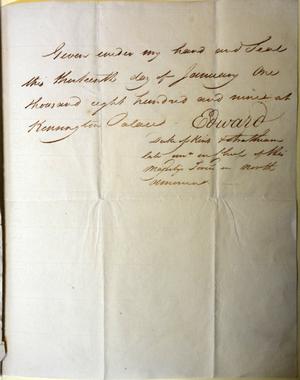 Given under my hand and Seal
this thirteenth day of January One
thousand eight hundred and nine at
Kensington Palace. Edward
Duke of Kent & Strathearn
late in Chief of His
Majestys Forces in North
America